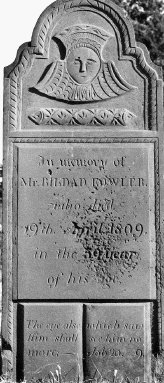 In memory of
Mr. BILDAD FOWLER.
who died
19th. April. 1809.
in the 59 year
of his age.
The eye also which saw
him shall see him no
more. Job 20. 9.